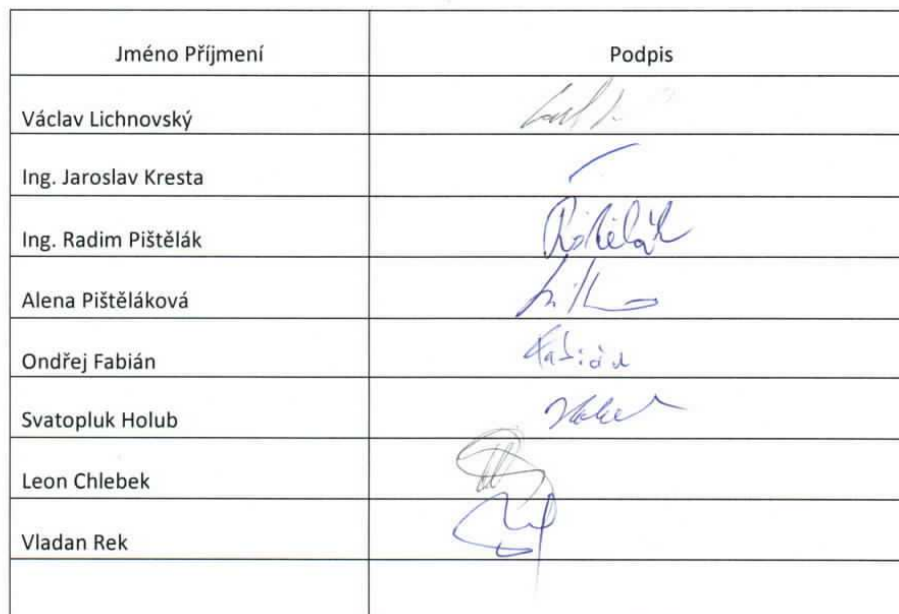 Jméno Příjmení Podpis
Václav Lichnovský
Ing. Jaroslav Kresta
Ing. Radim Pištělák Pištělák
Alena Pištěláková
Ondřej Fabián Fabián
Svatopluk Holub
Leon Chlebek
Vladan Rek